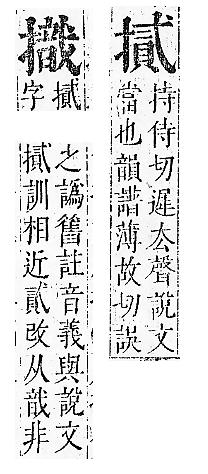 持侍切遲去聲說文
當也韻譜薄故切誤
字
之譌舊註音義與說文
訓相近貳改从戠非